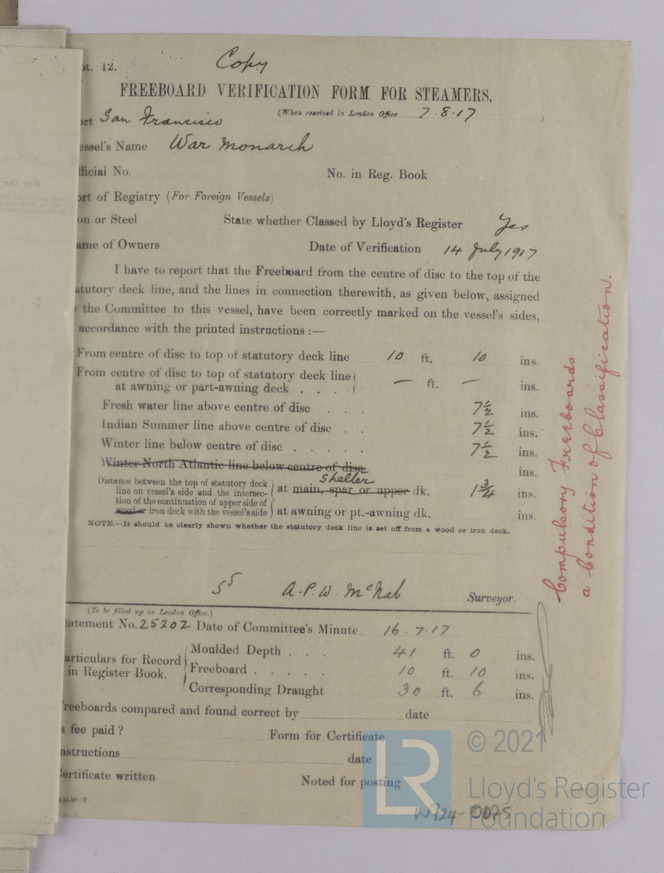 pt. 12. Copy
FREEBOARD VERIFICATION FORM FOR STEAMERS.
(When received in London Office 7.8.17
ort San Francisco
essel's Name War Monarch
fficial No. No. in Reg. Book
ort of Registry (For Foreign Vessels)
on or Steel State whether Classed by Lloyd's Register Yes
ame of Owners Date of Verification 14 July 1917
I have to report that the Freeboard from the centre of disc to the top of the
atutory deck line, and the lines in connection therewith, as given below, assigned
the Committee to this vessel, have been correctly marked on the vessel's sides,
accordance with the printed instructions :—
From centre of disc to top of statutory deck line 10 ft. 10 ins.
From centre of disc to top of statutory deck line
at awning or part-awning deck . . . . — ft. — ins.
Fresh water line above centre of disc . . . 7½ ins.
Indian Summer line above centre of disc . . 7½ ins.
Winter line below centre of disc . . . . . 7½ ins.
Winter North Atlantic line below centre of disc ins.
shelter
Distance between the top of statutory deck
line on vessel's side and the intersec- at main, spar or upper dk. 1¾ ins.
tion of the continuation of upper side of
wood or iron deck with the vessel's side at awning or pt.-awning dk. ins.
NOTE.—It should be clearly shown whether the statutory deck line is set off from a wood or iron deck.
A.P.W. McNab Surveyor.
(To be filled up in London Office.)
tatement No. 25202 Date of Committee's Minute 16.7.17
Moulded Depth . . . 41 ft. 0 ins.
articulars for Record
in Register Book. Freeboard . . . . . 10 ft. 10 ins.
Corresponding Draught 30 ft. 6 ins.
reeboards compared and found correct by date
s fee paid ? Form for Certificate
nstructions date
ertificate written Noted for posting
Compulsory Freeboards
a Condition of Classification.
LR
© 2021
Lloyd's Register
Foundation
W724-0075